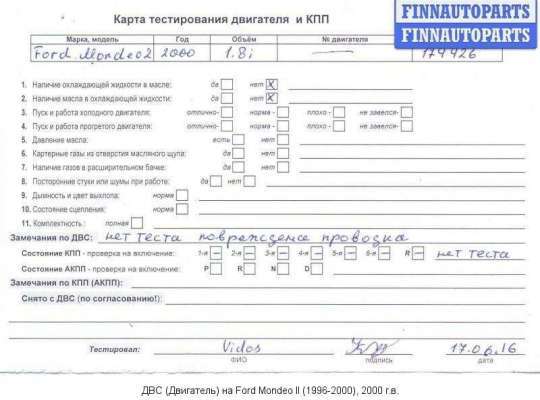 Карта тестирования двигателя и КПП
FINNAUTOPARTS
FINNAUTOPARTS
Марка, модель Год Объём № двигателя
Ford Mondeo2 2000 1.8i — 174926
1. Наличие охлаждающей жидкости в масле: да нет X
2. Наличие масла в охлаждающей жидкости: да нет X
3. Пуск и работа холодного двигателя: отлично- норма - плохо - не завелся-
4. Пуск и работа прогретого двигателя: отлично- норма - плохо - не завелся-
5. Давление масла: есть нет
6. Картерные газы из отверстия масляного щупа: да нет
7. Наличие газов в расширительном бачке: да нет
8. Посторонние стуки или шумы при работе: да нет
9. Дымность и цвет выхлопа: норма
10. Состояние сцепления: норма
11. Комплектность : полная
Замечания по ДВС: нет теста повреждена проводка
Состояние КПП - проверка на включение: 1-я – 2-я – 3-я – 4-я – 5-я – 6-я – R – нет теста
Состояние АКПП - проверка на включение: P R N D
Замечания по КПП (АКПП):
Снято с ДВС (по согласованию!):
Тестировал: Vidos 17.06.16
ФИО подпись дата
ДВС (Двигатель) на Ford Mondeo II (1996-2000), 2000 г.в.